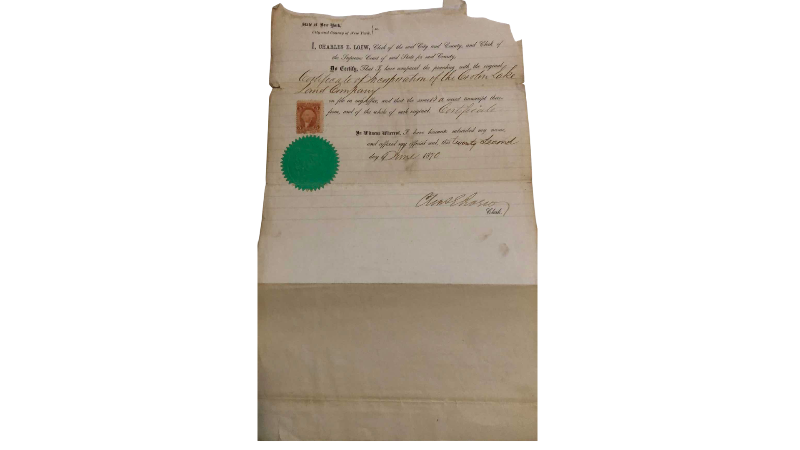 State of New York,
City and County of New York, } ss.
I, CHARLES E. LOEW, Clerk of the said City and County, and Clerk of
the Supreme Court of said State for said County,
Do Certify, That I have compared the preceding with the original
Certificate of Incorporation of the Lake
Land Company
on file in my office, and that the same is a correct transcript there-
from, and of the whole of such original Certificate
In Witness Whereof, I have hereunto subscribed my name,
and affixed my official seal, this twenty second
day of June 1870
Chas E Loew
Clerk.